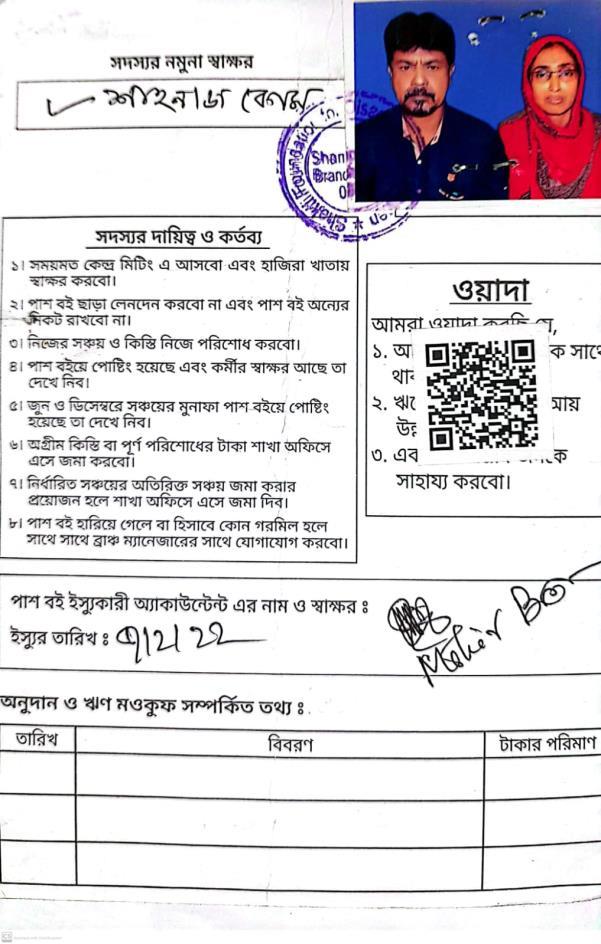 সদস্যর নমুনা স্বাক্ষর
শাহনাজ বেগম
সদস্যর দায়িত্ব ও কর্তব্য
১। সময়মত কেন্দ্র মিটিং এ আসবো এবং হাজিরা খাতায়
স্বাক্ষর করবো।
২। পাশ বই ছাড়া লেনদেন করবো না এবং পাশ বই অন্যের
নিকট রাখবো না।
৩। নিজের সঞ্চয় ও কিস্তি নিজে পরিশোধ করবো।
৪। পাশ বইয়ে পোষ্টিং হয়েছে এবং কর্মীর স্বাক্ষর আছে তা
দেখে নিব।
৫। জুন ও ডিসেম্বরে সঞ্চয়ের মুনাফা পাশ বইয়ে পোষ্টিং
হয়েছে তা দেখে নিব।
৬। অগ্রীম কিস্তি বা পূর্ণ পরিশোধের টাকা শাখা অফিসে
এসে জমা করবো।
৭। নির্ধারিত সঞ্চয়ের অতিরিক্ত সঞ্চয় জমা করার
প্রয়োজন হলে শাখা অফিসে এসে জমা দিব।
৮। পাশ বই হারিয়ে গেলে বা হিসাবে কোন গরমিল হলে
সাথে সাথে ব্রাঞ্চ ম্যানেজারের সাথে যোগাযোগ করবো।
ওয়াদা
আমরা ওয়াদা করছি যে,
১. আ ক সাথে
থাক
২. ঋণে আয়
উন্ন
৩. এব কে
সাহায্য করবো।
পাশ বই ইস্যুকারী অ্যাকাউন্টেন্ট এর নাম ও স্বাক্ষর ঃ
ইস্যুর তারিখ ঃ ৭/২/২২
অনুদান ও ঋণ মওকুফ সম্পর্কিত তথ্য ঃ
তারিখ বিবরণ টাকার পরিমাণ